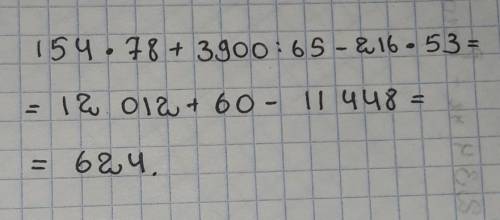 154 · 78 + 3900 : 65 - 216 · 53 =
= 12 012 + 60 - 11 448 =
= 624.